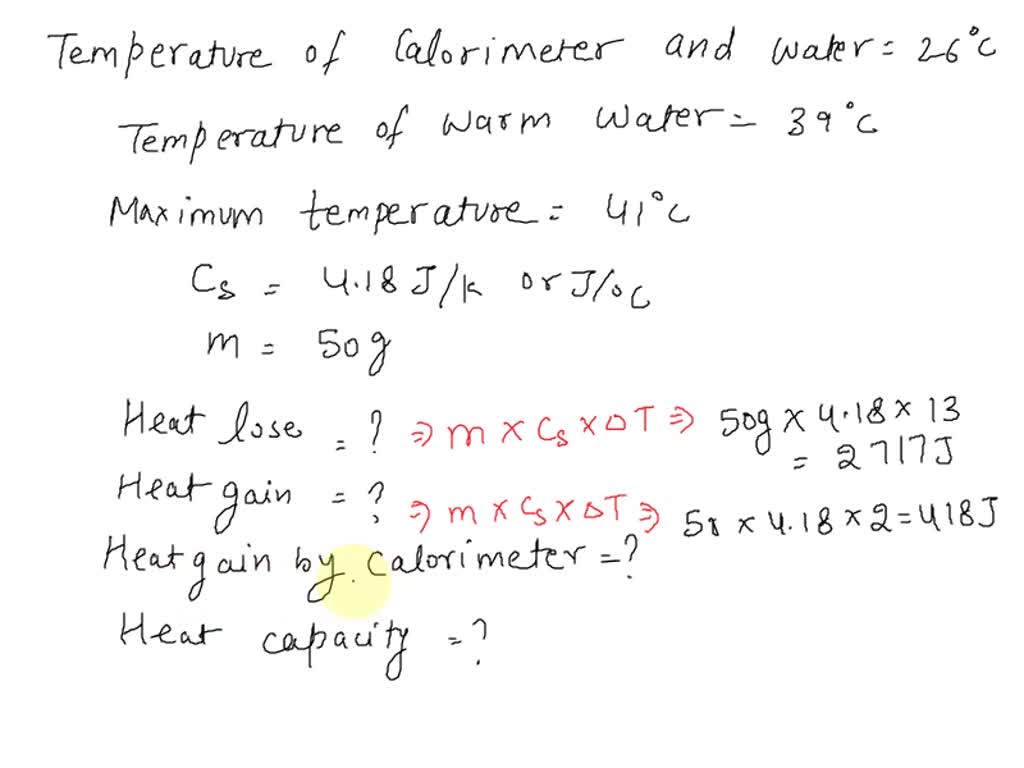 Temperature of Calorimeter and water = 26°C
Temperature of warm water = 39°C
Maximum temperature = 41°C
Cs = 4.18 J/k or J/°C
m = 50g
Heat lose = ? ⇒ m × Cs × ΔT ⇒ 50g × 4.18 × 13
= 2717J
Heat gain = ? ⇒ m × Cs × ΔT ⇒ 50 × 4.18 × 2 = 418J
Heat gain by calorimeter = ?
Heat capacity = ?